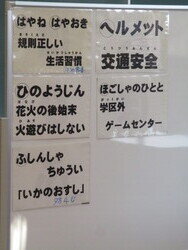 はやね はやおき
規則正しい
生活習慣
ヘルメット
交通安全
ひのようじん
花火の後始末
火遊びはしない
ほごしゃのひとと
学区外
ゲームセンター
ふしんしゃ
ちゅうい
「いかのおすし」